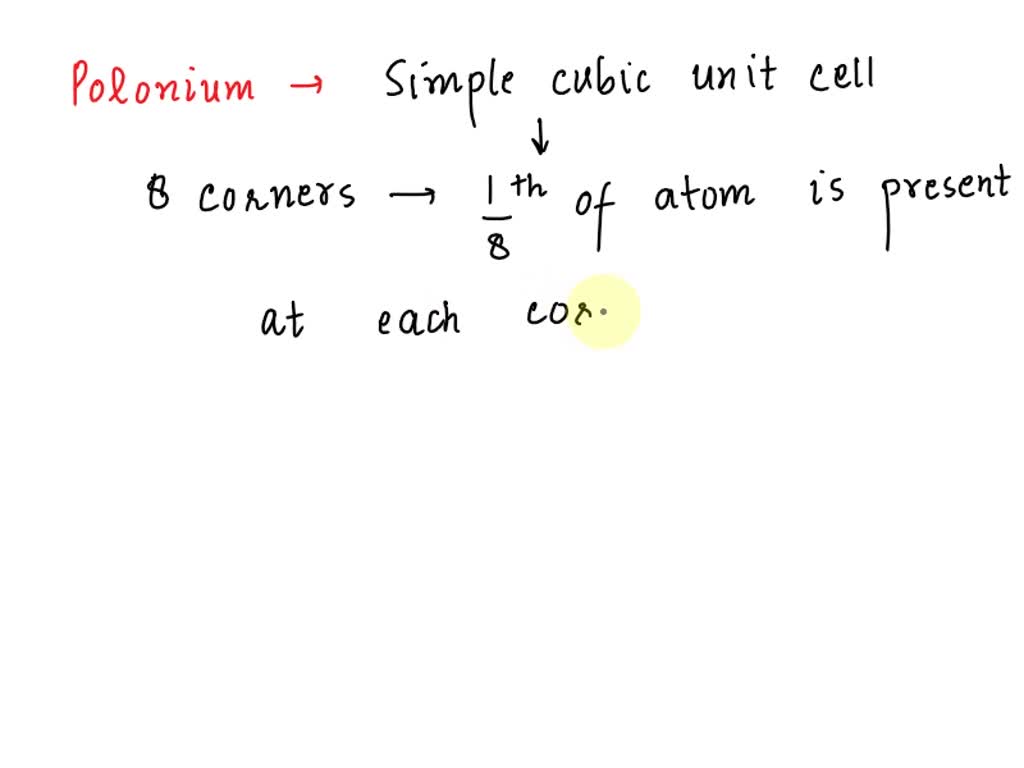 Polonium → Simple cubic unit cell
↓
8 corners → 1/8 th of atom is present
at each cor